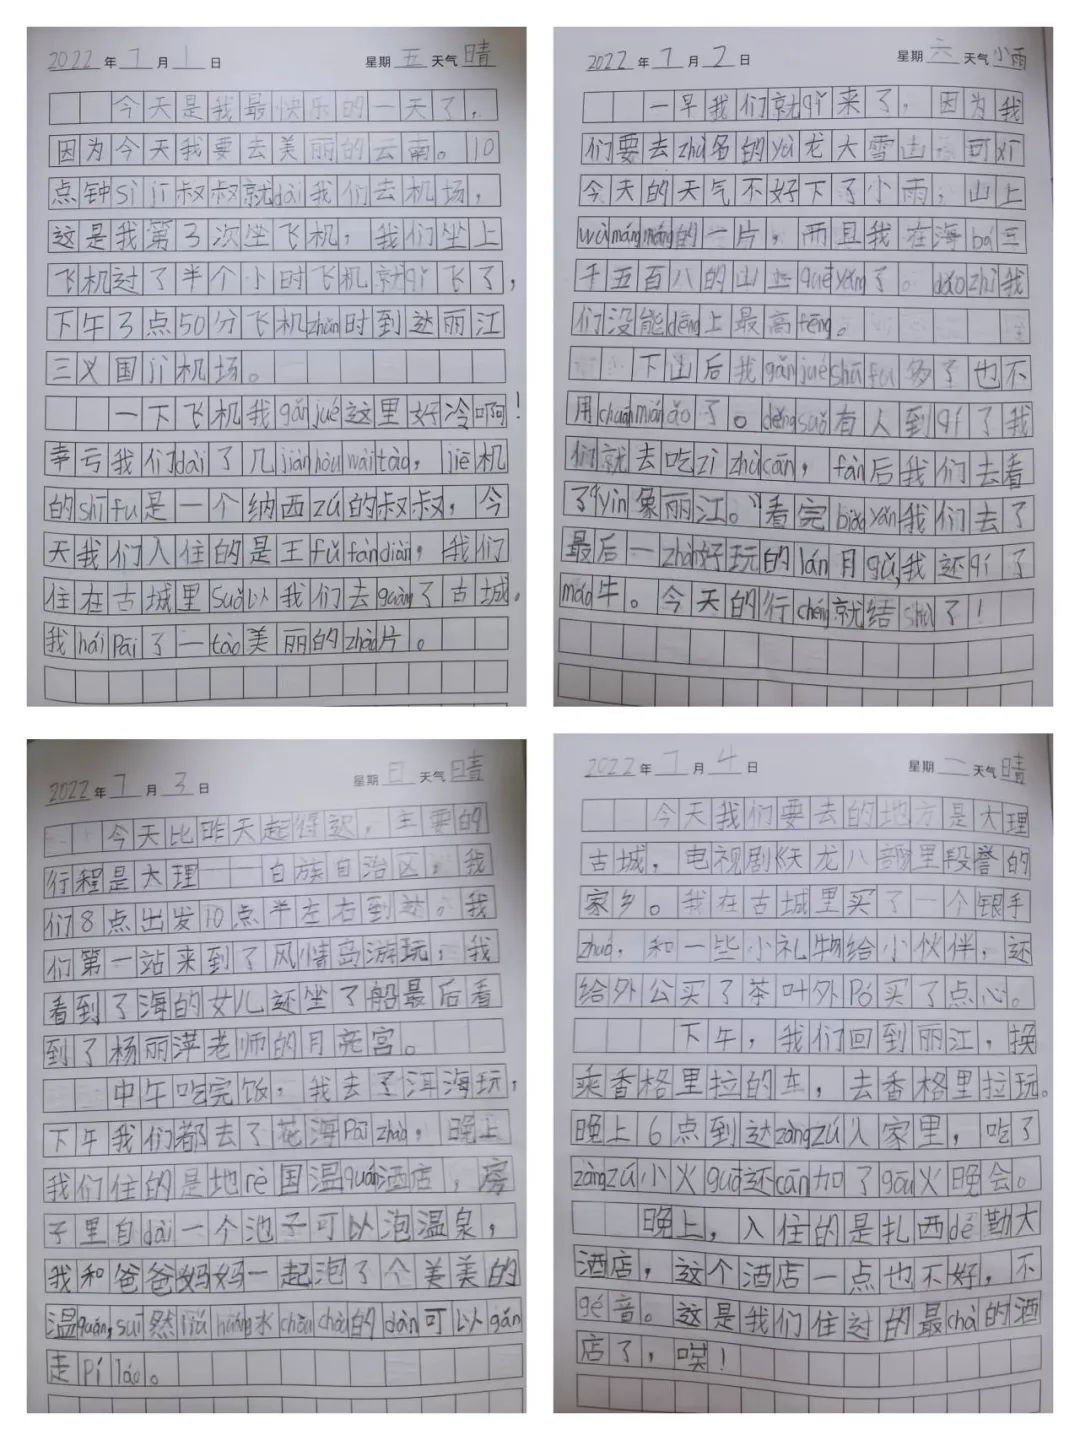 2022年7月1日 星期五天气晴
今天是我最快乐的一天了，
因为今天我要去美丽的云南。10
点钟sī jī叔叔就dài我们去机场，
这是我第3次坐飞机，我们坐上
飞机过了半个小时飞机就qǐ飞了，
下午3点50分飞机zhǔn时到达丽江
三义国jì机场。
一下飞机我gǎn jué这里好冷啊！
幸亏我们dài了几jiàn hòu wài tào，jiē机
的shī fu是一个纳西zú的叔叔，今
天我们入住的是王fǔ fàn diàn，我们
住在古城里suǒ以我们去guàng了古城。
我hái pāi了一tào美丽的zhào片。
2022年7月2日 星期六天气小雨
一早我们就qǐ来了，因为我
们要去zhù名的yù龙大雪山 可xī
今天的天气不好下了小雨，山上
wù máng máng的一片，而且我在海bá三
千五百八的山上quē yǎng了。dǎo zhì我
们没能dēng上最高fēng。
下山后我gǎn jué shū fu多了也不
用chuān mián ǎo了。děng suǒ有人到qí了我
们就去吃zì zhù cān，fàn后我们去看
了“yìn象丽江。”看完biǎo yǎn我们去了
最后一zhàn好玩的lán月gǔ,我还qí了
máo牛。今天的行chéng就结shù了！
2022年7月3日 星期日天气晴
今天比昨天起得迟，主要的
行程是大理——白族自治区，我
们8点出发10点半左右到达。我
们第一站来到了风情岛游玩，我
看到了海的女儿还坐了船最后看
到了杨丽萍老师的月亮宫。
中午吃完饭，我去了洱海玩，
下午我们都去了花海pāi zhào，晚上
我们住的是地rè国温quán酒店，房
子里自dài一个池子可以泡温泉，
我和爸爸妈妈一起泡了个美美的
温quán, suī然liú huáng水chòu chòu的dàn可以gǎn
走pí láo。
2022年7月4日 星期一天气晴
今天我们要去的地方是大理
古城，电视剧《天龙八部》里段誉的
家乡。我在古城里买了一个银手
zhuó，和一些小礼物给小伙伴，还
给外公买了茶叶外pó买了点心。
下午，我们回到丽江，换
乘香格里拉的车，去香格里拉玩。
晚上6点到达zàng zú人家里，吃了
zàng zú小火guō还cān加了gōu火晚会。
晚上，入住的是扎西dé勤大
酒店，这个酒店一点也不好，不
gé音。这是我们住过的最chà的酒
店了，唉！